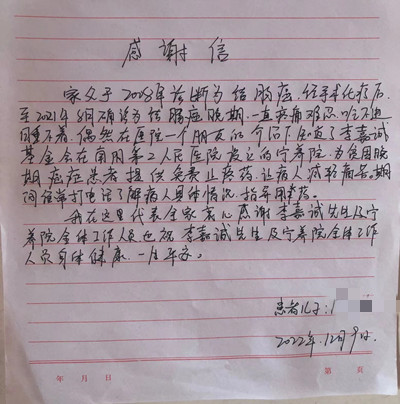 感谢信
家父于2018年诊断为结肠癌，经手术化疗后，
至2021年8月确诊为结肠癌晚期，一直疼痛难忍，吃不进
睡不着，偶然在医院一个朋友的介绍下知道了李嘉诚
基金会在南阳第二人民医院设立的宁养院，为贫困晚
期癌症患者提供免费止疼药，让病人减轻痛苦，期
间经常打电话了解病人具体情况，指导用药。
我在这里代表全家衷心感谢李嘉诚先生及宁
养院全体工作人员，也祝李嘉诚先生及宁养院全体工作
人员身体健康，一生平安。
患者儿子：
2022年.12月9日.
年 月 日 第 页